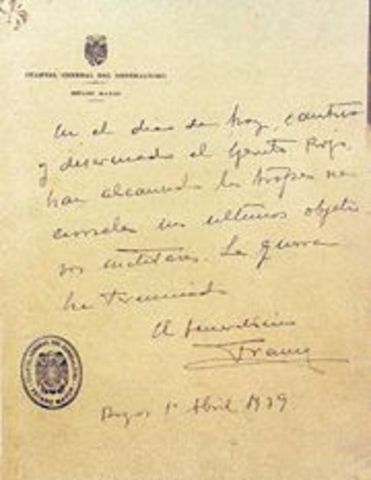 CUARTEL GENERAL DEL GENERALISIMO
ESTADO MAYOR
En el dia de hoy, cautivo
y desarmado el Ejercito Rojo,
han alcanzado las tropas na
cionales sus ultimos objeti
vos militares. La guerra
ha terminado
El Generalisimo
Franco
Burgos 1º Abril 1939